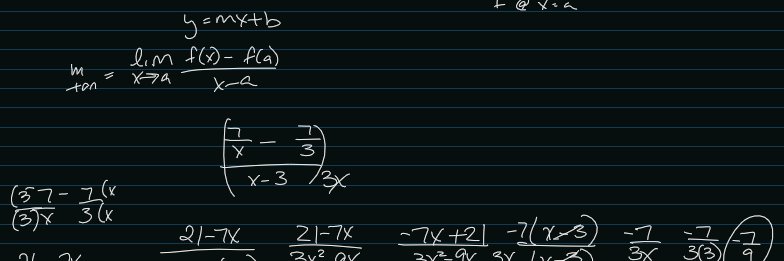 f @ x=a
y=mx+b
m tan = lim x→a (f(x) - f(a)) / (x-a)
((7/x - 7/3) / (x-3)) 3x
(3 7 / (3)x - 7(x / 3(x
21-7x 21-7x / 3x²-9x -7x+21 / 3x²-9x -7(x-3) / 3x(x-3) -7 / 3x -7 / 3(3) -7 / 9